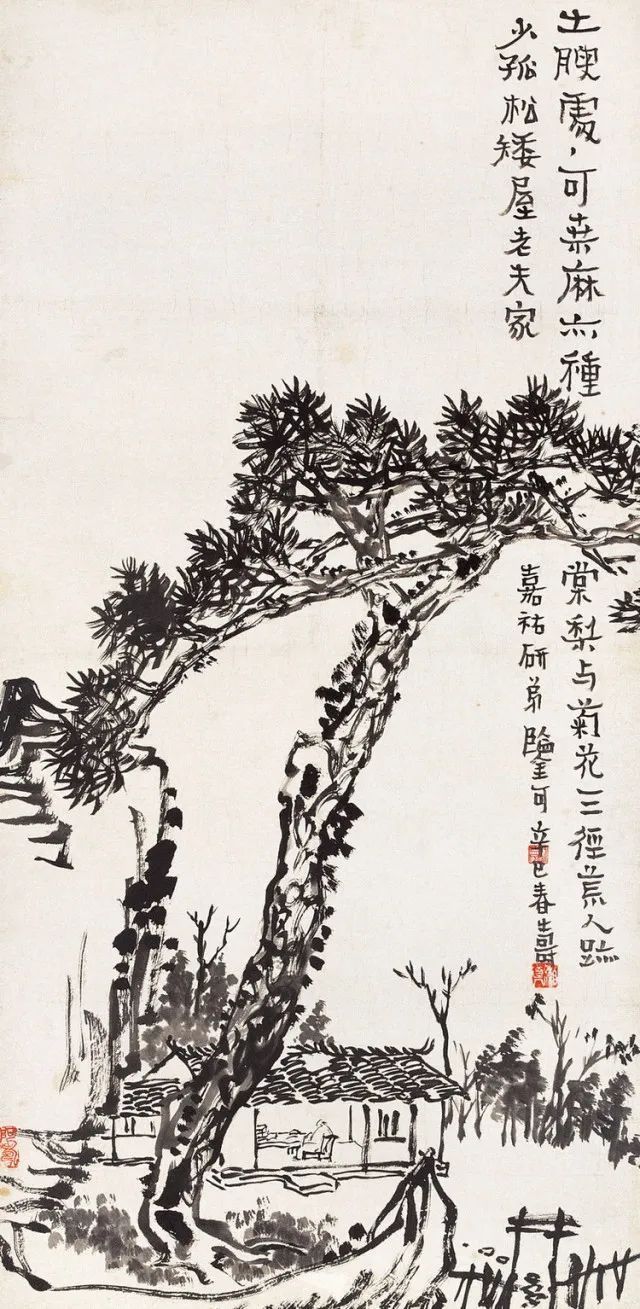 土腴處〻可桑麻亦種
棠梨与菊花三徑荒人跡
少孤松矮屋老夫家
嘉祐研弟鑒可辛巳春壽